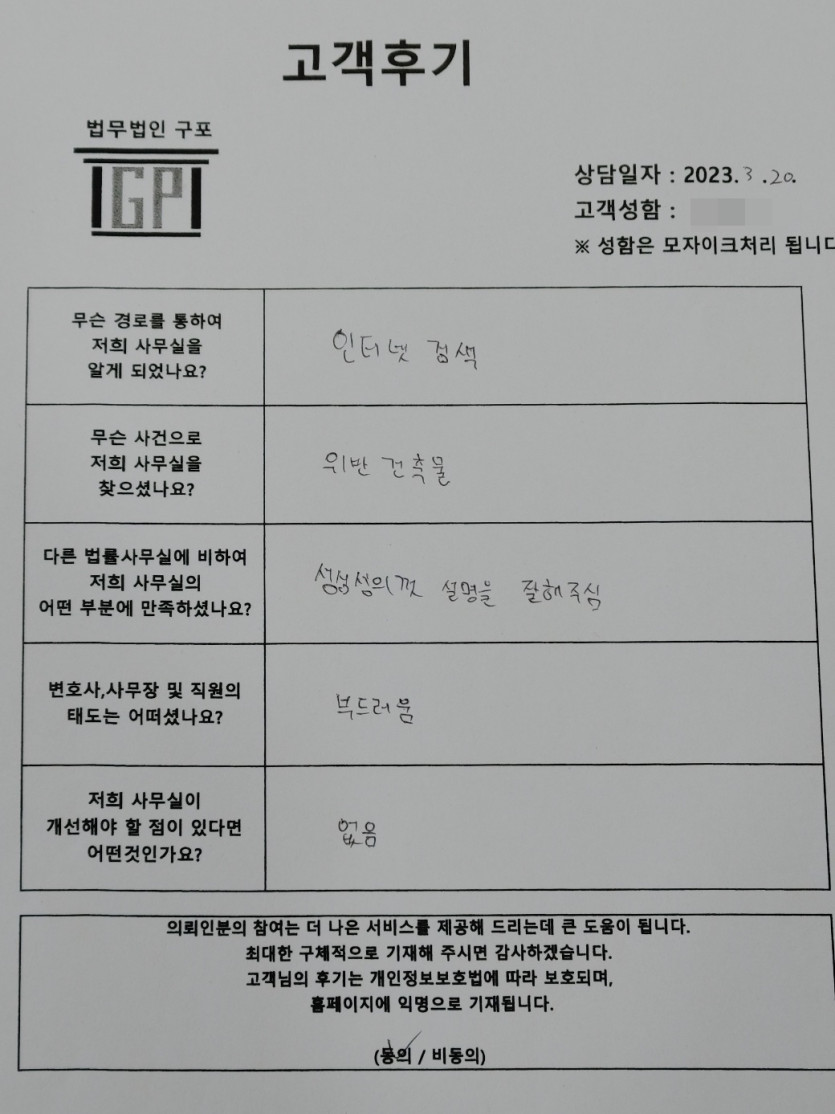 고객후기
법무법인 구포
GP
상담일자 : 2023. 3 . 20.
고객성함 :
※ 성함은 모자이크처리 됩니다
무슨 경로를 통하여
저희 사무실을
알게 되었나요?
인터넷 검색
무슨 사건으로
저희 사무실을
찾으셨나요?
위반 건축물
다른 법률사무실에 비하여
저희 사무실의
어떤 부분에 만족하셨나요?
설명을 잘해주심
변호사,사무장 및 직원의
태도는 어떠셨나요?
부드러움
저희 사무실이
개선해야 할 점이 있다면
어떤것인가요?
없음
의뢰인분의 참여는 더 나은 서비스를 제공해 드리는데 큰 도움이 됩니다.
최대한 구체적으로 기재해 주시면 감사하겠습니다.
고객님의 후기는 개인정보보호법에 따라 보호되며,
홈페이지에 익명으로 기재됩니다.
(동의 / 비동의)